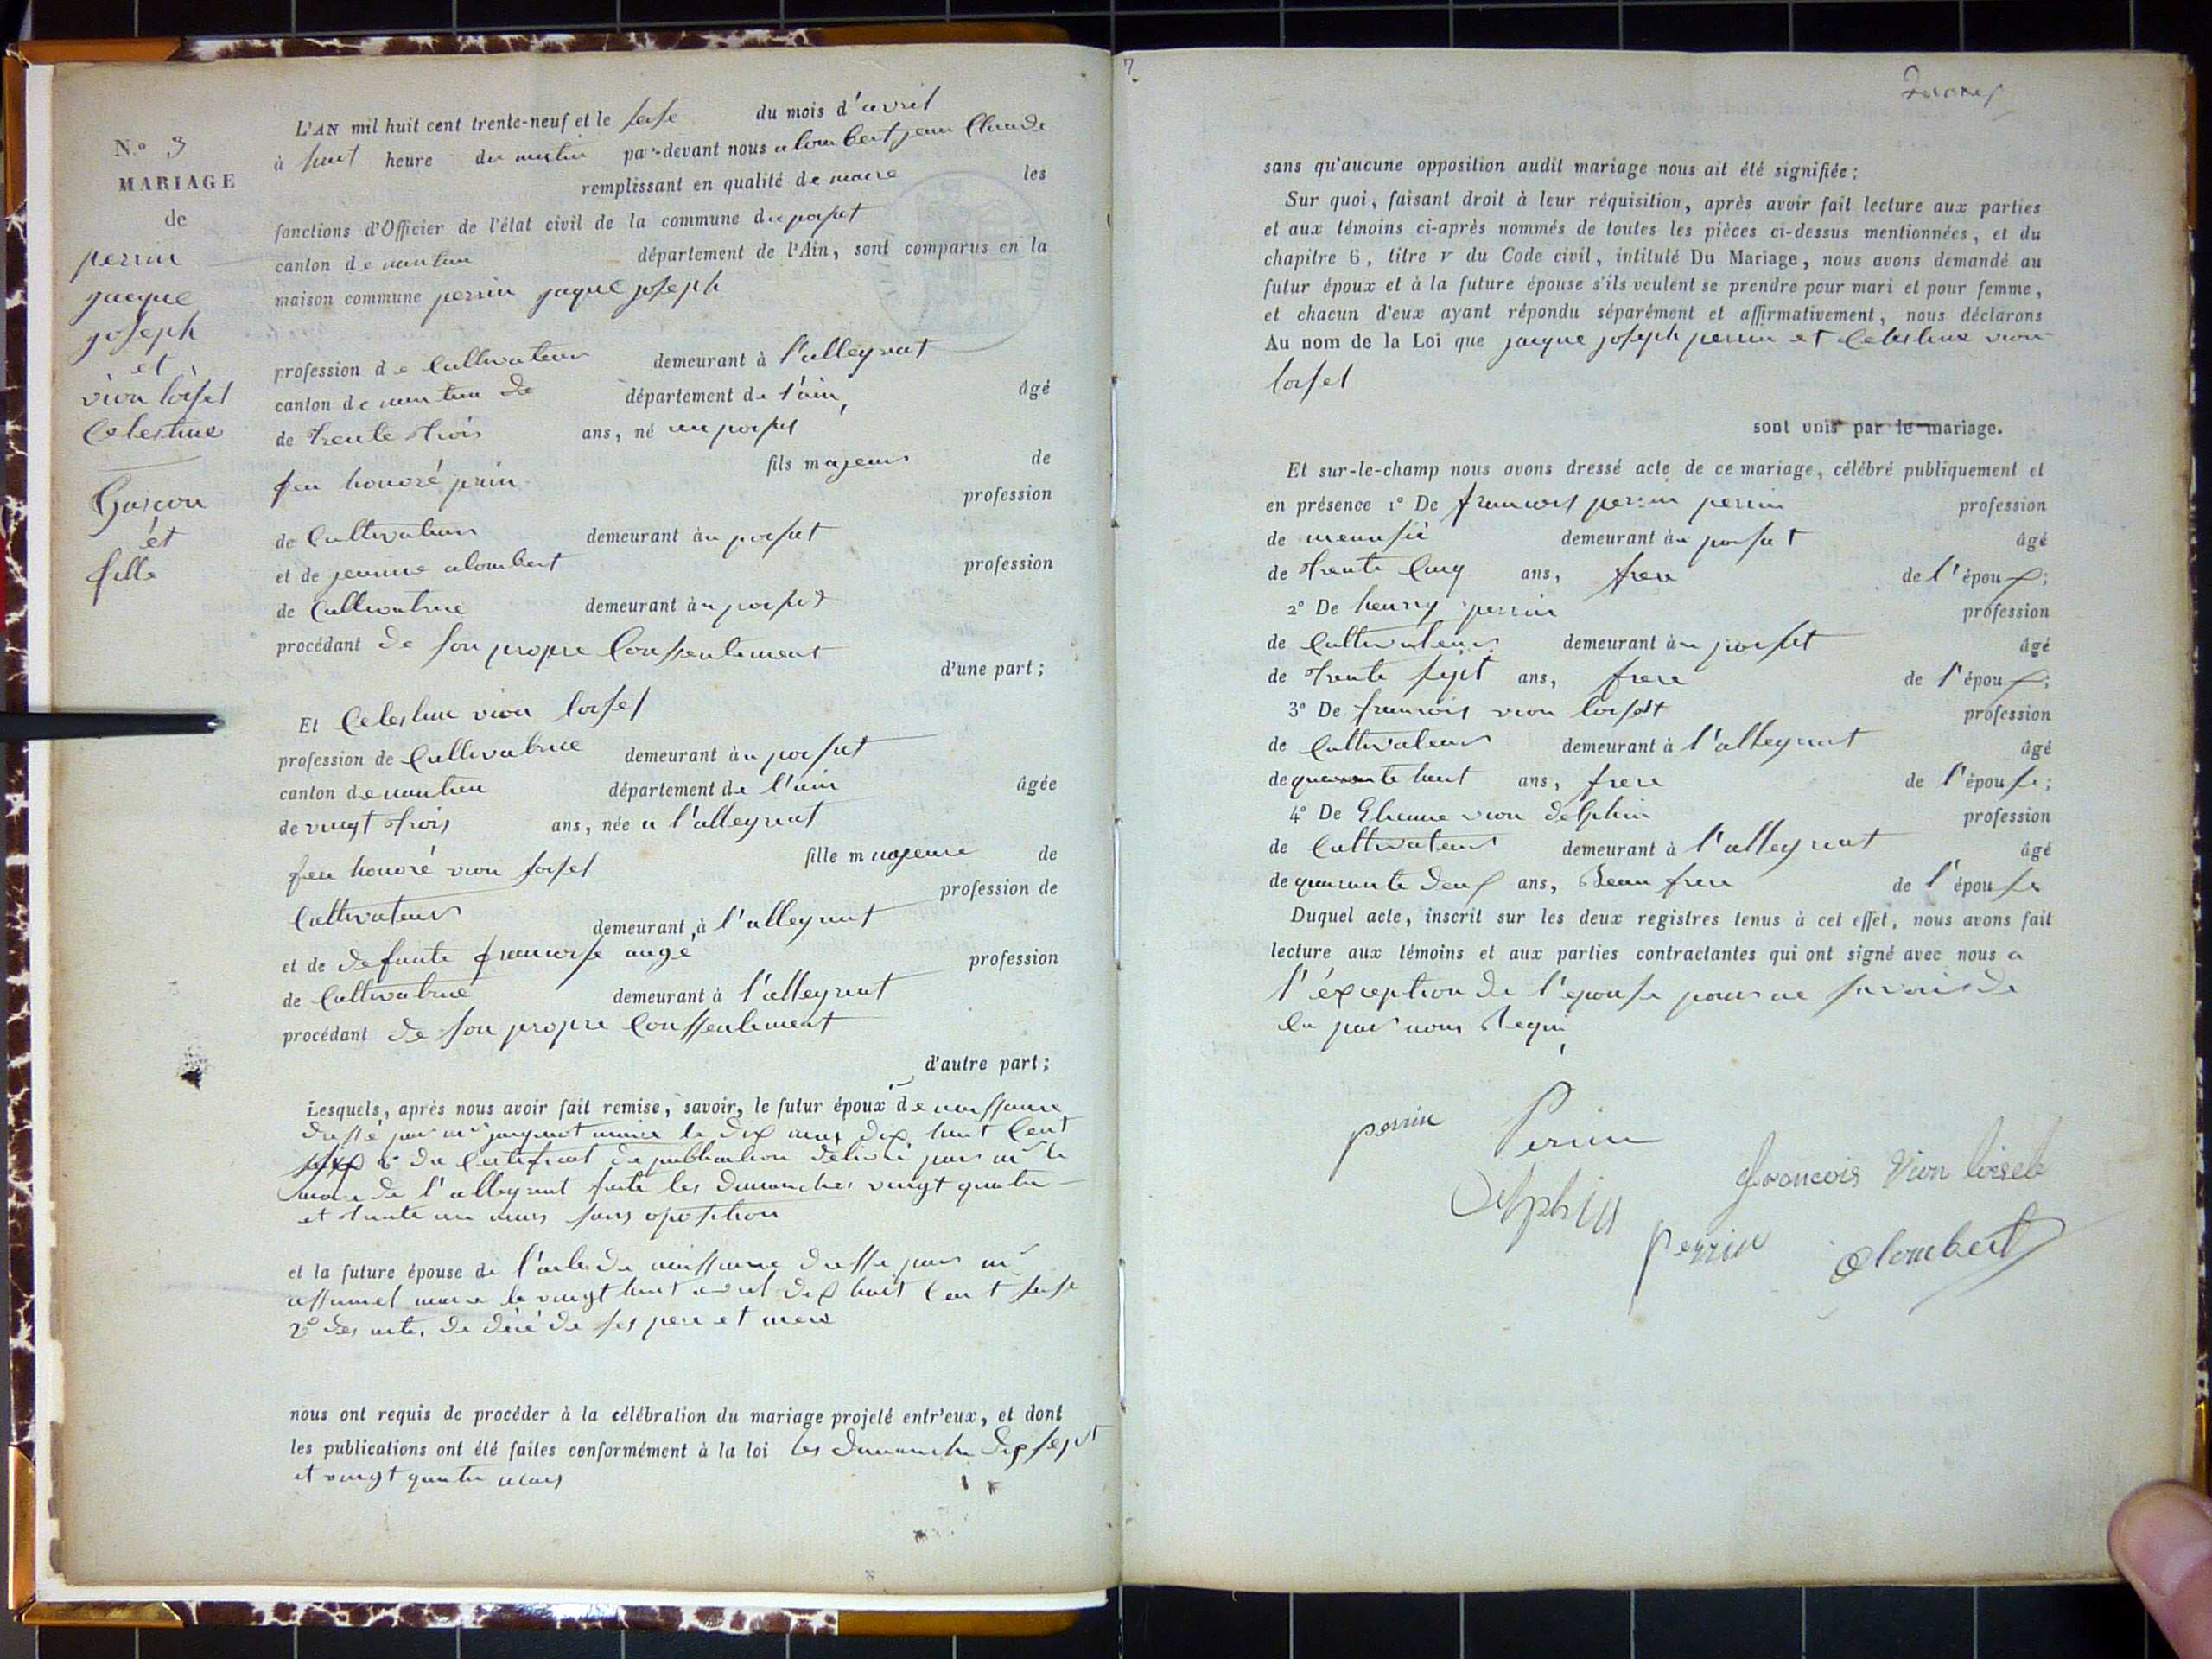 N.º 3
MARIAGE
de
perrin
jacque
joseph
et
vion loisel
Celestine
Garcon
et
fille
L'AN mil huit cent trente-neuf et le sese du mois d'avril
à huit heure du matin par-devant nous alombert jean Claude
remplissant en qualité de maire les
fonctions d'Officier de l'état civil de la commune du poisat
canton de nantua département de l'Ain, sont comparus en la
maison commune perrin jaque joseph
profession de Cultivateur demeurant à l'alleyriat
canton de nantua de département de l'ain, âgé
de trente trois ans, né au poisat
fils majeur de
feu honoré prin profession
de Cultivateur demeurant au poisat
et de jeanne alombert profession
de Cultivatrice demeurant au poisat
procédant de son propre Conssentement
d'une part;
Et Celestine vion loisel
profession de Cultivatrice demeurant au poisat
canton de nantua département de l'ain âgée
de vingt trois ans, née a l'alleyriat
fille majeure de
feu honoré vion loisel profession de
Cultivateur demeurant à l'alleyriat
et de defunte francoise augé profession
de Cultivatrice demeurant à l'alleyriat
procédant de son propre Conssentement
d'autre part;
Lesquels, après nous avoir fait remise, savoir, le futur époux de naissance
dressé par mr maire le dix mars dix huit Cent
du Certificat de publication délivré par mr le
maire de l'alleyriat faite les dimanches vingt quatre
et trente un mars sans oposition
et la future épouse de l'acte de naissance dressé par mr
maire le vingt huit avril dix huit Cent sese
2º des actes de décé de ses pere et mere
nous ont requis de procéder à la célébration du mariage projeté entr'eux, et dont
les publications ont été faites conformément à la loi les dimanche dix sept
et vingt quatre mars
7
sans qu'aucune opposition audit mariage nous ait été signifiée;
Sur quoi, faisant droit à leur réquisition, après avoir fait lecture aux parties
et aux témoins ci-après nommés de toutes les pièces ci-dessus mentionnées, et du
chapitre 6, titre v du Code civil, intitulé Du Mariage, nous avons demandé au
futur époux et à la future épouse s'ils veulent se prendre pour mari et pour femme,
et chacun d'eux ayant répondu séparément et affirmativement, nous déclarons
Au nom de la Loi que jacque joseph perrin et Celestine vion
loisel
sont unis par le mariage.
Et sur-le-champ nous avons dressé acte de ce mariage, célébré publiquement et
en présence 1º De francois perrin perrin profession
de menusié demeurant au poisat âgé
de trente Cinq ans, frere de l'époux;
2º De henry perrin profession
de Cultivateur demeurant au poisat âgé
de trente sept ans, frere de l'époux;
3º De francois vion loiselt profession
de Cultivateur demeurant à l'alleyriat âgé
de quarante huit ans, frere de l'épouse;
4º De Etienne vion delphin profession
de Cultivateur demeurant à l'alleyriat âgé
de quarante deux ans, Beau frere de l'épouse
Duquel acte, inscrit sur les deux registres tenus à cet effet, nous avons fait
lecture aux témoins et aux parties contractantes qui ont signé avec nous a
l'éxception de l'epouse pour ne savoir de
ce par nous Requi
perrin Perrin
francois Vion loisel
Delphin
perrin alombert